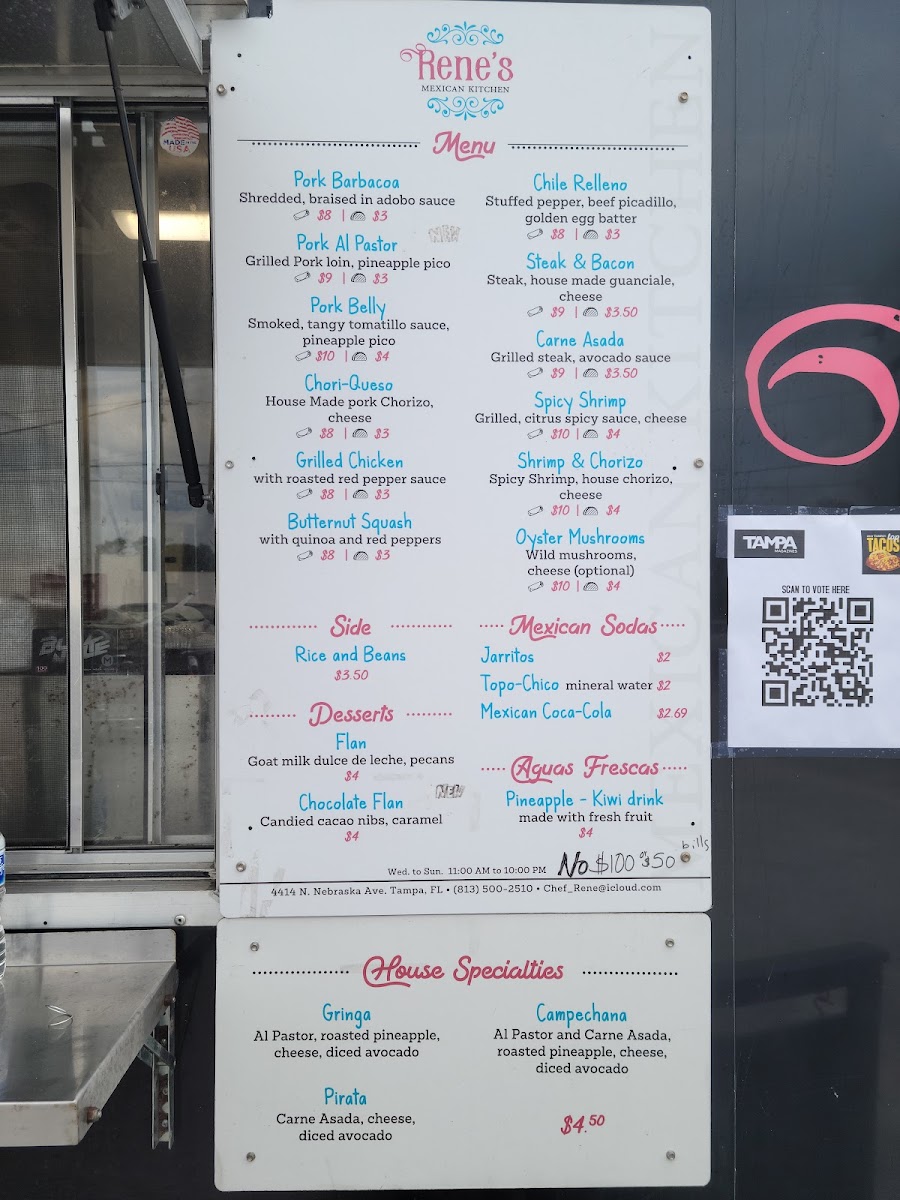 Rene's
MEXICAN KITCHEN
Menu
Pork Barbacoa
Shredded, braised in adobo sauce
$8 | $3
NEW
Pork Al Pastor
Grilled Pork loin, pineapple pico
$9 | $3
Pork Belly
Smoked, tangy tomatillo sauce,
pineapple pico
$10 | $4
Chori-Queso
House Made pork Chorizo,
cheese
$8 | $3
Grilled Chicken
with roasted red pepper sauce
$8 | $3
Butternut Squash
with quinoa and red peppers
$8 | $3
Chile Relleno
Stuffed pepper, beef picadillo,
golden egg batter
$8 | $3
Steak & Bacon
Steak, house made guanciale,
cheese
$9 | $3.50
Carne Asada
Grilled steak, avocado sauce
$9 | $3.50
Spicy Shrimp
Grilled, citrus spicy sauce, cheese
$10 | $4
Shrimp & Chorizo
Spicy Shrimp, house chorizo,
cheese
$10 | $4
Oyster Mushrooms
Wild mushrooms,
cheese (optional)
$10 | $4
Side
Rice and Beans
$3.50
Desserts
Flan
Goat milk dulce de leche, pecans
$4
NEW
Chocolate Flan
Candied cacao nibs, caramel
$4
Mexican Sodas
Jarritos $2
Topo-Chico mineral water $2
Mexican Coca-Cola $2.69
Aguas Frescas
Pineapple - Kiwi drink
made with fresh fruit
$4
No $100 or $50 bills
Wed. to Sun. 11:00 AM to 10:00 PM
4414 N. Nebraska Ave. Tampa, FL • (813) 500-2510 • Chef_Rene@icloud.com
MEXICAN KITCHEN
House Specialties
Gringa
Al Pastor, roasted pineapple,
cheese, diced avocado
Pirata
Carne Asada, cheese,
diced avocado
Campechana
Al Pastor and Carne Asada,
roasted pineapple, cheese,
diced avocado
$4.50
MADE IN THE
USA
TAMPA
MAGAZINES
TACOS
SCAN TO VOTE HERE